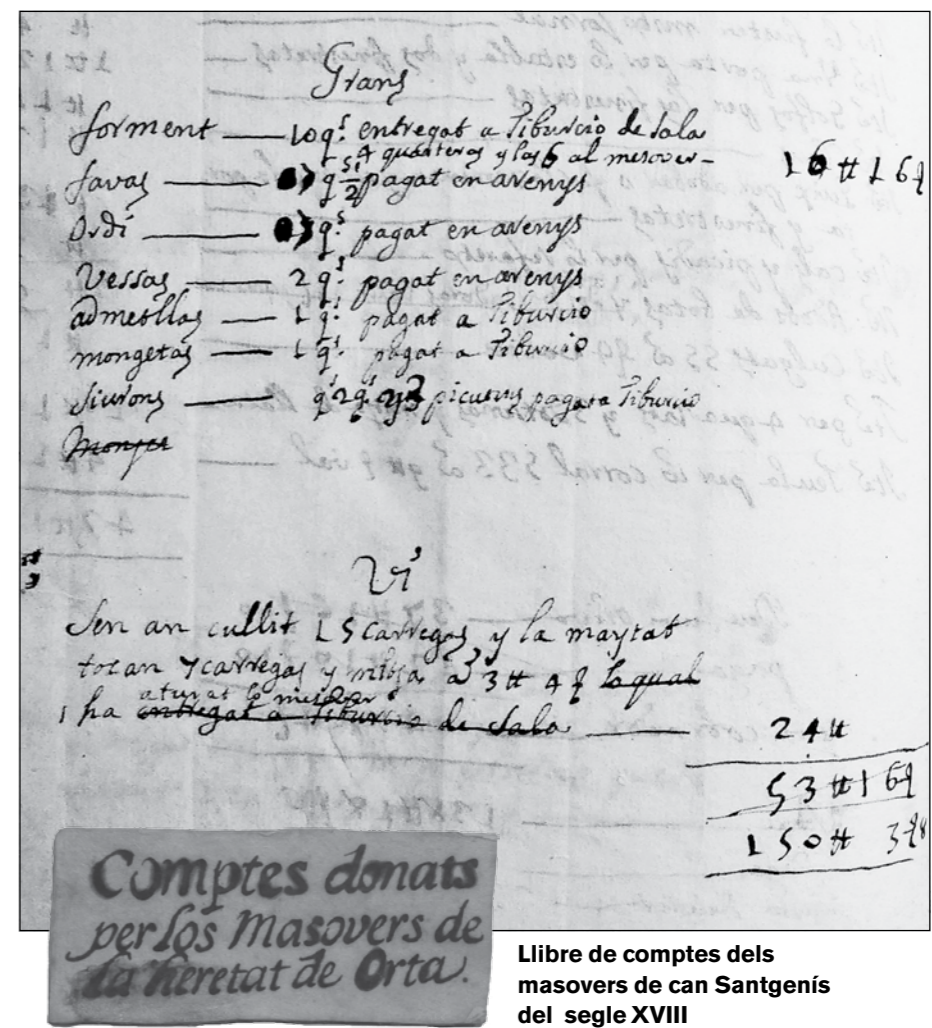 Grans
forment — 10 q.s entregat a Tiburcio de Sala
4 quarteras y las 6 al mesover — 16 ₶ 16
favas — q.s 1/2 pagat en arenys
Ordi — q.s pagat en arenys
Vessas — 2 q.s pagat en arenys
admetllas — 1 q.s pagat a Tiburcio
mongetas — 1 q.s pagat a Tiburcio
siurons — 2 q.s picutins pagat a Tiburcio
Monjet
Vi
Sen an cullit 15 carregas y la maytat
tocan 7 carregas y mitja a 3 ₶ 4 lo qual
aturat lo mesover
ha entregat a Tiburcio de Sala — 24 ₶
53 ₶ 16
150 ₶ 3
Comptes donats
per los Masovers de
la heretat de Orta.
Llibre de comptes dels
masovers de can Santgenís
del segle XVIII